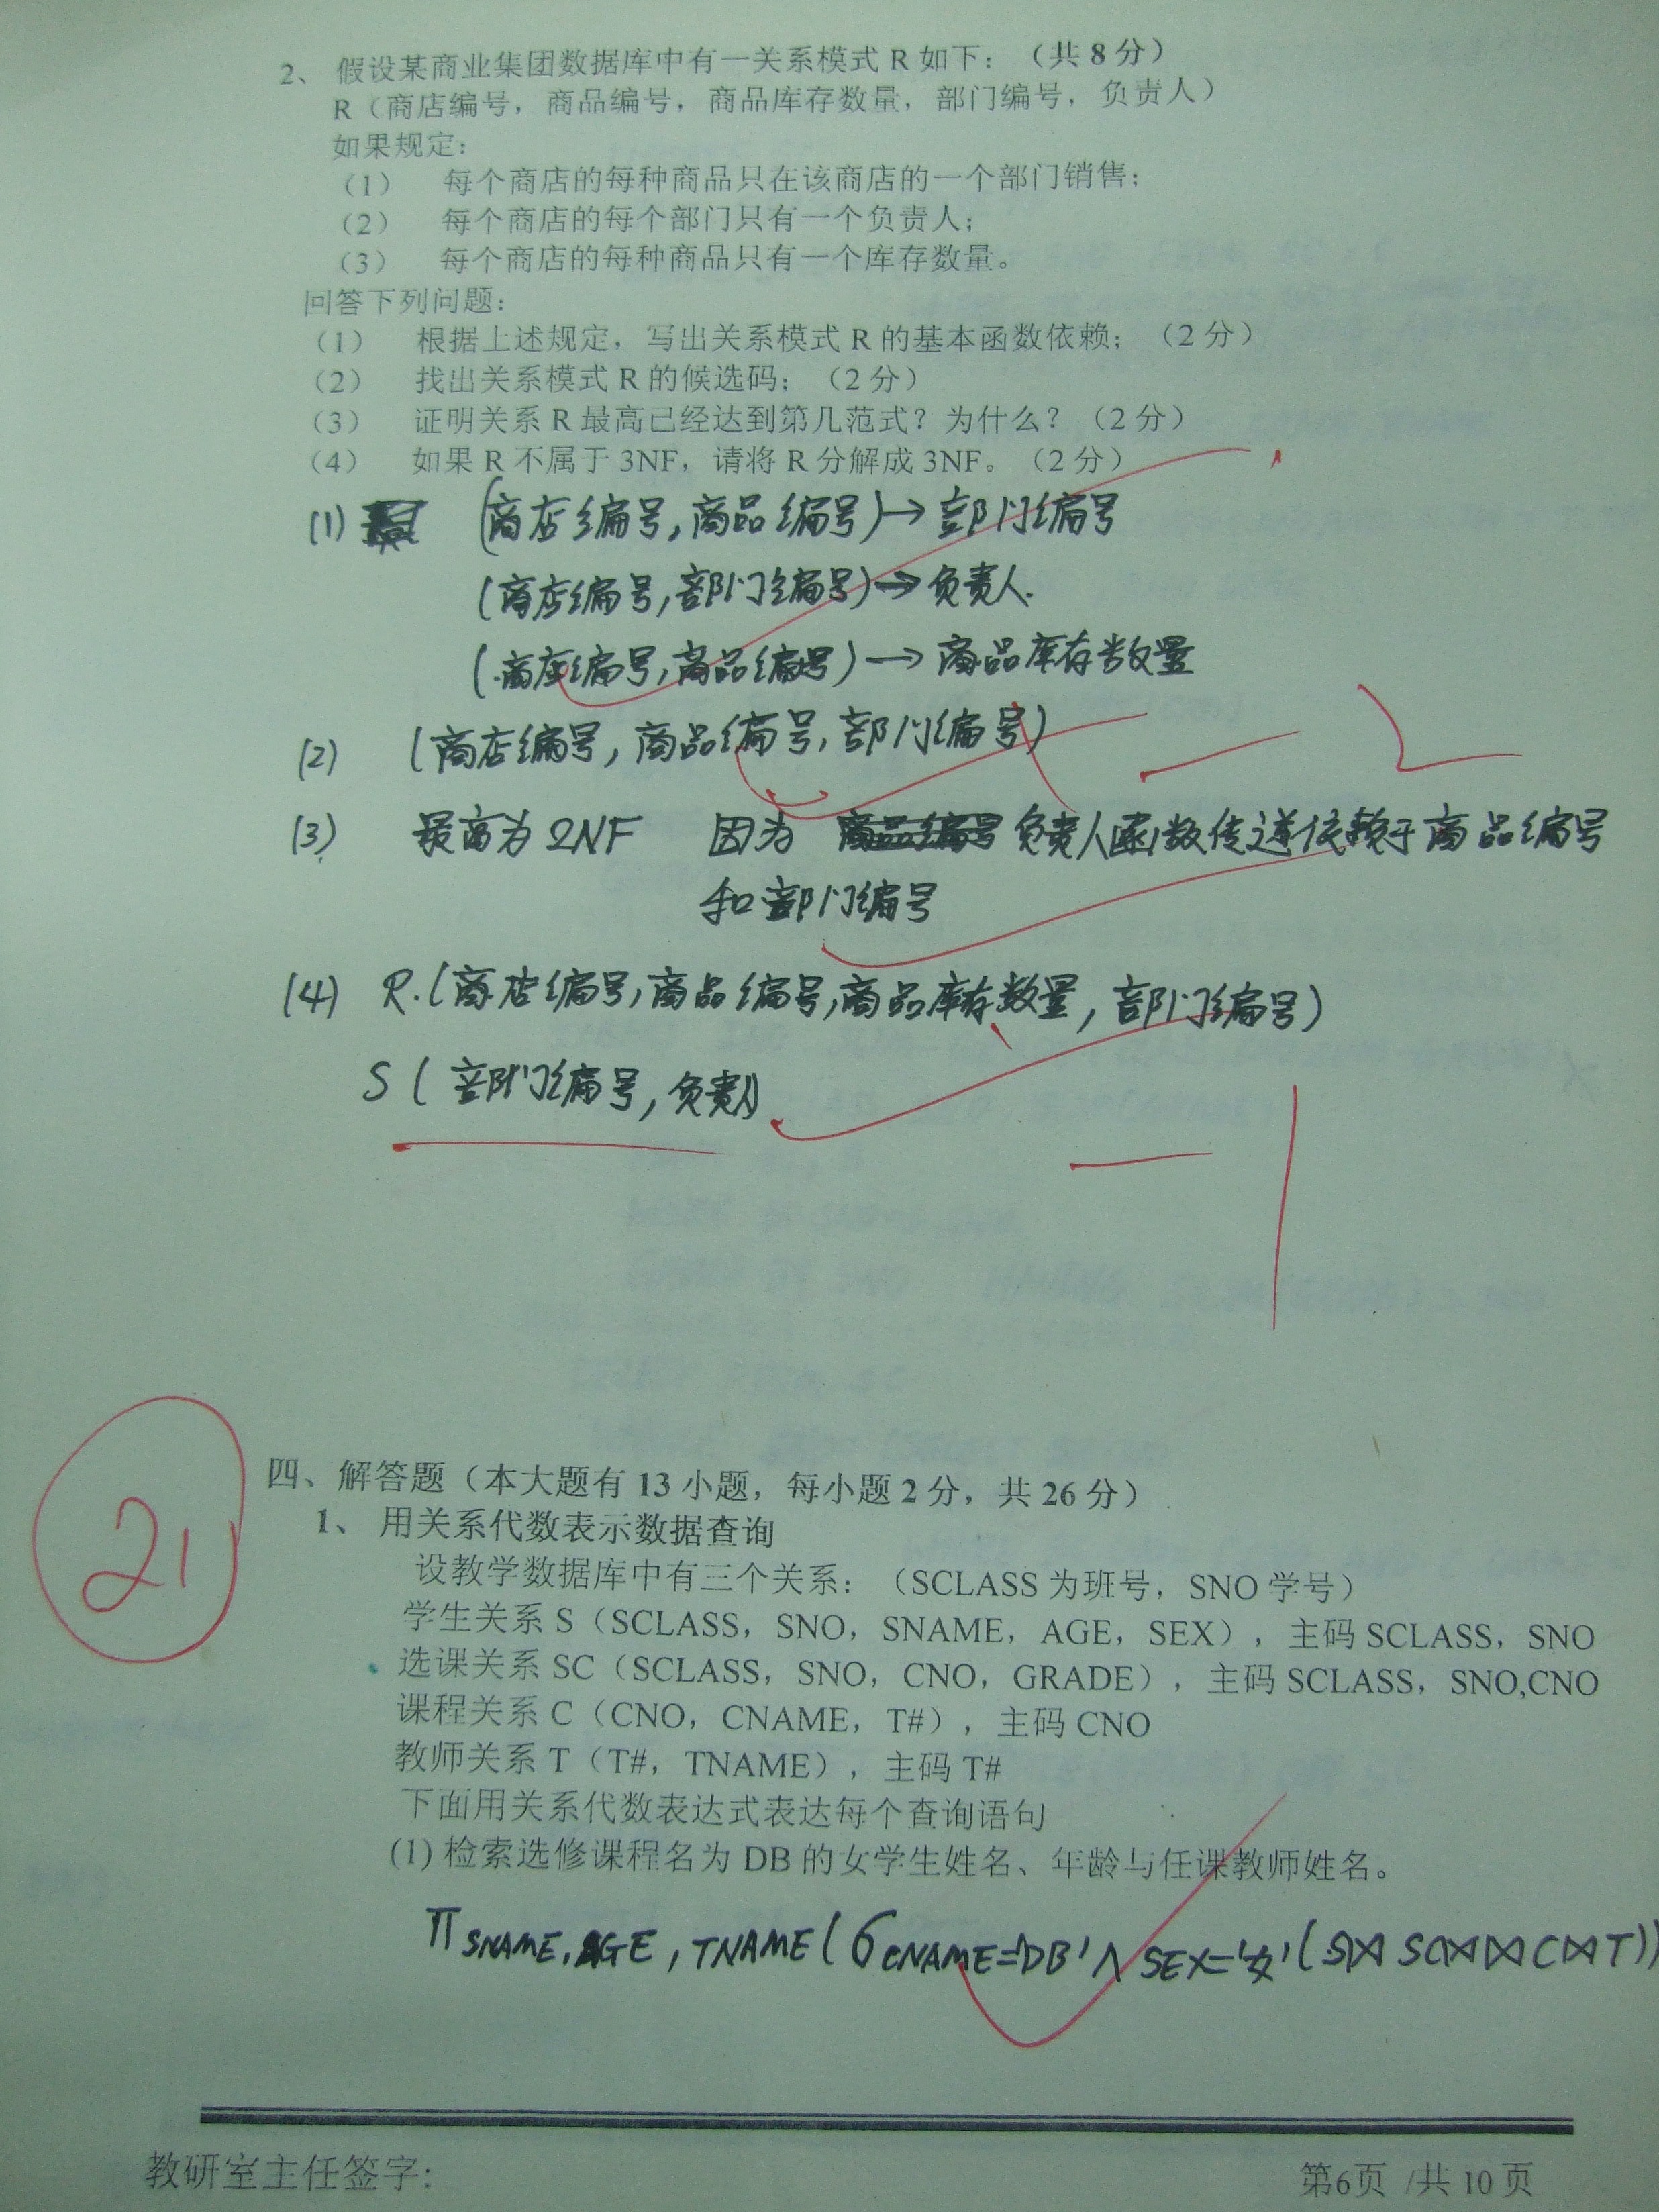 2、 假设某商业集团数据库中有一关系模式 R 如下：（共 8 分）
R（商店编号，商品编号，商品库存数量，部门编号，负责人）
如果规定：
（1） 每个商店的每种商品只在该商店的一个部门销售；
（2） 每个商店的每个部门只有一个负责人；
（3） 每个商店的每种商品只有一个库存数量。
回答下列问题：
（1） 根据上述规定，写出关系模式 R 的基本函数依赖；（2 分）
（2） 找出关系模式 R 的候选码；（2 分）
（3） 证明关系 R 最高已经达到第几范式？为什么？（2 分）
（4） 如果 R 不属于 3NF，请将 R 分解成 3NF。（2 分）
(1) (商店编号,商品编号)→部门编号
(商店编号,部门编号)→负责人.
(商店编号,商品编号)→商品库存数量
(2) (商店编号,商品编号,部门编号)
(3) 最高为2NF 因为 负责人函数传递依赖于商品编号
和部门编号
(4) R.(商店编号,商品编号,商品库存数量,部门编号)
S(部门编号,负责人)
21
四、解答题（本大题有 13 小题，每小题 2 分，共 26 分）
1、 用关系代数表示数据查询
设教学数据库中有三个关系：（SCLASS 为班号，SNO 学号）
学生关系 S（SCLASS，SNO，SNAME，AGE，SEX），主码 SCLASS，SNO
选课关系 SC（SCLASS，SNO，CNO，GRADE），主码 SCLASS，SNO,CNO
课程关系 C（CNO，CNAME，T#），主码 CNO
教师关系 T（T#，TNAME），主码 T#
下面用关系代数表达式表达每个查询语句
(1) 检索选修课程名为 DB 的女学生姓名、年龄与任课教师姓名。
π SNAME,AGE,TNAME(σ CNAME='DB'∧SEX='女'(S⋈SC⋈⋈C⋈T))
教研室主任签字:
第6页 /共 10 页